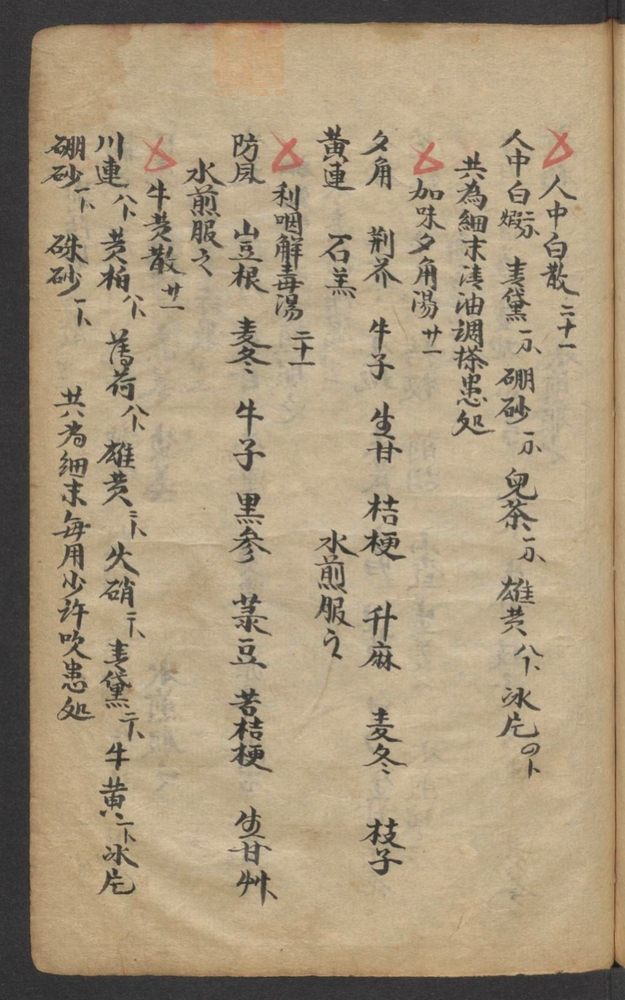 人中白散 二十一
人中白煆二分 青黛一分 硼砂一分 兒茶一分 雄黄八下 冰片四卜
共為細末清油調搽患処
加味夕角湯 廿一
夕角 荆芥 牛子 生甘 桔梗 升麻 麦冬 枝子
黄連 石羔 水煎服之
利咽解毒湯 二十一
防風 山豆根 麦冬 牛子 黒參 菉豆 苦桔梗 生甘艸
水煎服之
牛黄散 廿一
川連八卜 黄柏八卜 薄荷八卜 雄黄三卜 火硝二卜 青黛二卜 牛黄一卜 冰片
硼砂一卜 硃砂一卜 共为細末每用少許吹患処